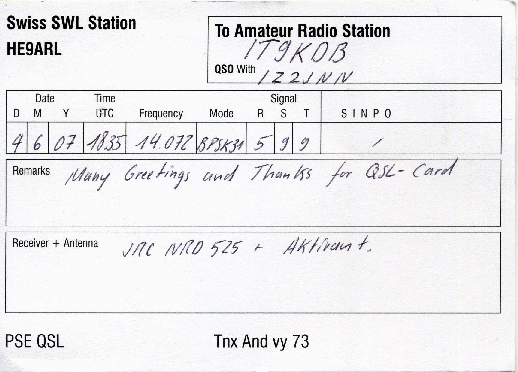 Swiss SWL Station
HE9ARL
To Amateur Radio Station
IT9KDB
QSO With IZ2JNN
Date Time Signal
D M Y UTC Frequency Mode R S T S I N P O
4 6 07 1835 14.072 BPSK31 5 9 9 /
Remarks Many Greetings and Thanks for QSL-Card
Receiver + Antenna JRC NRD 525 + Aktivant.
PSE QSL Tnx And vy 73